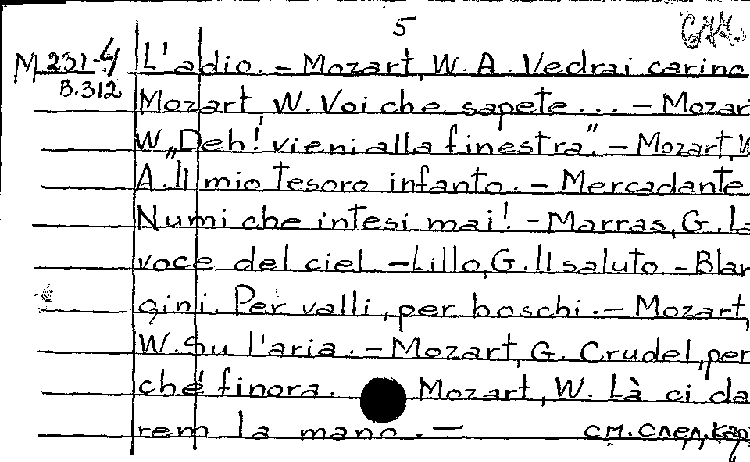 5
М 231-4
В.312
L'adio. – Mozart, W. A. Vedrai carino
Mozart, W. Voi che sapete... – Mozar
W „Deh! vieni alla finestra". – Mozart, W
A. Il mio tesoro infanto. – Mercadante
Numi che intesi mai! – Marras, G. La
voce del ciel – Lillo, G. Il saluto – Blan
gini. Per valli, per boschi. – Mozart,
W. Su l'aria. – Mozart, G. Crudel, per
ché finora. Mozart, W. Là ci da
rem la mano. – см. след. кар